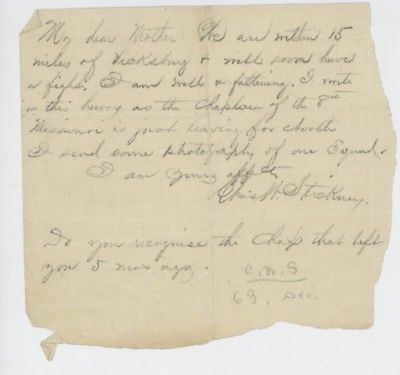 My dear Mother We are within 15
miles of Vicksburg & will soon have
a fight. I am well & fattening. I write
in this hurry as the Chaplain of the 8th
Missouri is just leaving for
I send some photographs of our Squad.
I am yours aff
Chas W. Stickney.
Do you recognise the chap that left
you 5 mos ago.
63, Dec.